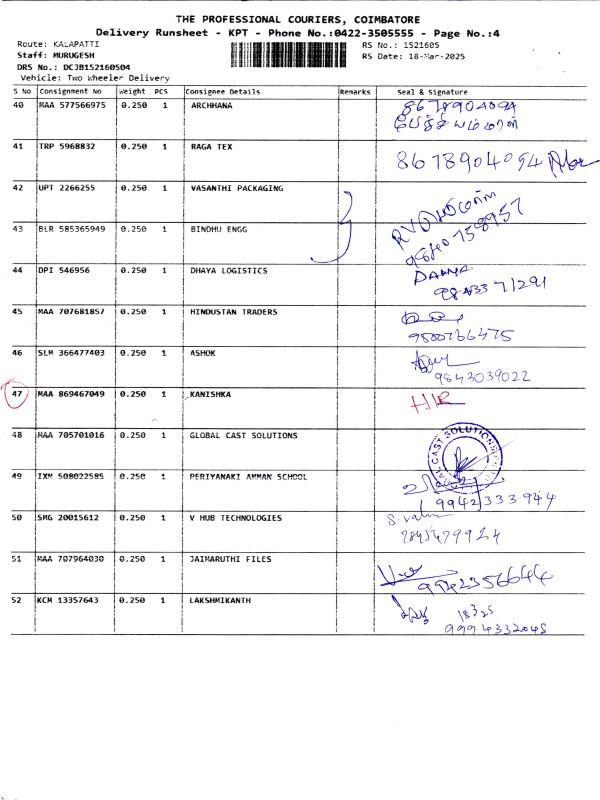 THE PROFESSIONAL COURIERS, COIMBATORE
Delivery Runsheet - KPT - Phone No.:0422-3505555 - Page No.:4
Route: KALAPATTI RS No.: 1521605
Staff: MURUGESH RS Date: 18-Mar-2025
DRS No.: DCJB152160504
Vehicle: Two Wheeler Delivery
S No Consignment No Weight PCS Consignee Details Remarks Seal & Signature
40 MAA 577566975 0.250 1 ARCHHANA 8678904094
41 TRP 5968832 0.250 1 RAGA TEX 8678904094
42 UPT 2266255 0.250 1 VASANTHI PACKAGING
43 BLR 585365949 0.250 1 BINDHU ENGG
44 DPI 546956 0.250 1 DHAYA LOGISTICS
45 MAA 707681857 0.250 1 HINDUSTAN TRADERS
9500766475
46 SLM 366477403 0.250 1 ASHOK
9843039022
47 MAA 869467049 0.250 1 KANISHKA
48 MAA 705701016 0.250 1 GLOBAL CAST SOLUTIONS
49 IXM 508022585 0.250 1 PERIYANAKI AMMAN SCHOOL
9942333944
50 SMG 20015612 0.250 1 V HUB TECHNOLOGIES
51 MAA 707964030 0.250 1 JAIMARUTHI FILES
9942356644
52 KCM 13357643 0.250 1 LAKSHMIKANTH 18325
9994332048